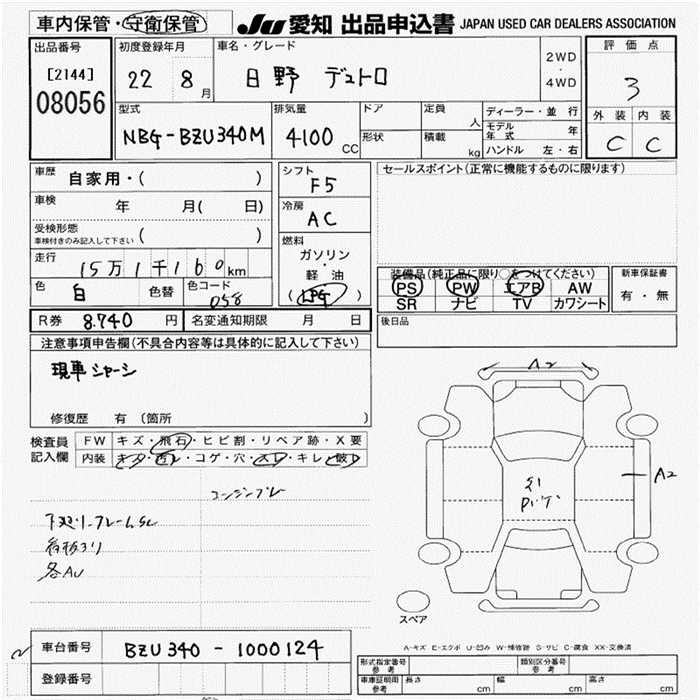 車内保管・守衛保管
JU 愛知 出品申込書 JAPAN USED CAR DEALERS ASSOCIATION
出品番号
[2144]
08056
初度登録年月
22 8月
車名・グレード
日野 デュトロ
2WD
・
4WD
評価点
3
外装 内装
C C
型式
NBG-BZU340M
排気量
4100 CC
ドア
形状
定員 人
積載 kg
ディーラー・並行
モデル年式 年
ハンドル 左・右
車歴 自家用・( )
車検 年 月( 日)
受検形態
車検付きのみ記入して下さい ( )
走行 15万1千160km
色 白 色替 色コード 058
シフト
F5
冷房
AC
燃料
ガソリン
・
軽油
(LPG)
セールスポイント(正常に機能するものに限ります)
装備品(純正品に限り○をつけてください)
PS PW エアB AW
SR ナビ TV カワシート
新車保証書
有・無
R券 8.740円 名変通知期限 月 日
後日品
注意事項申告欄(不具合内容等は具体的に記入して下さい)
現車シャーシ
修復歴 有(箇所 )
検査員記入欄
FW キズ・飛石・ヒビ割・リペア跡・X要
内装 キズ・汚レ・コゲ・穴・スレ・キレ・破レ
A2
A2
スペア
A-キズ E-エクボ U-凹み W-補修跡 S-サビ C-腐食 XX-交換済
車台番号 BZU340-1000124
登録番号
形式指定番号 参考
類別区分番号 参考
車庫証明用 参考 長さ cm 幅 cm 高さ cm